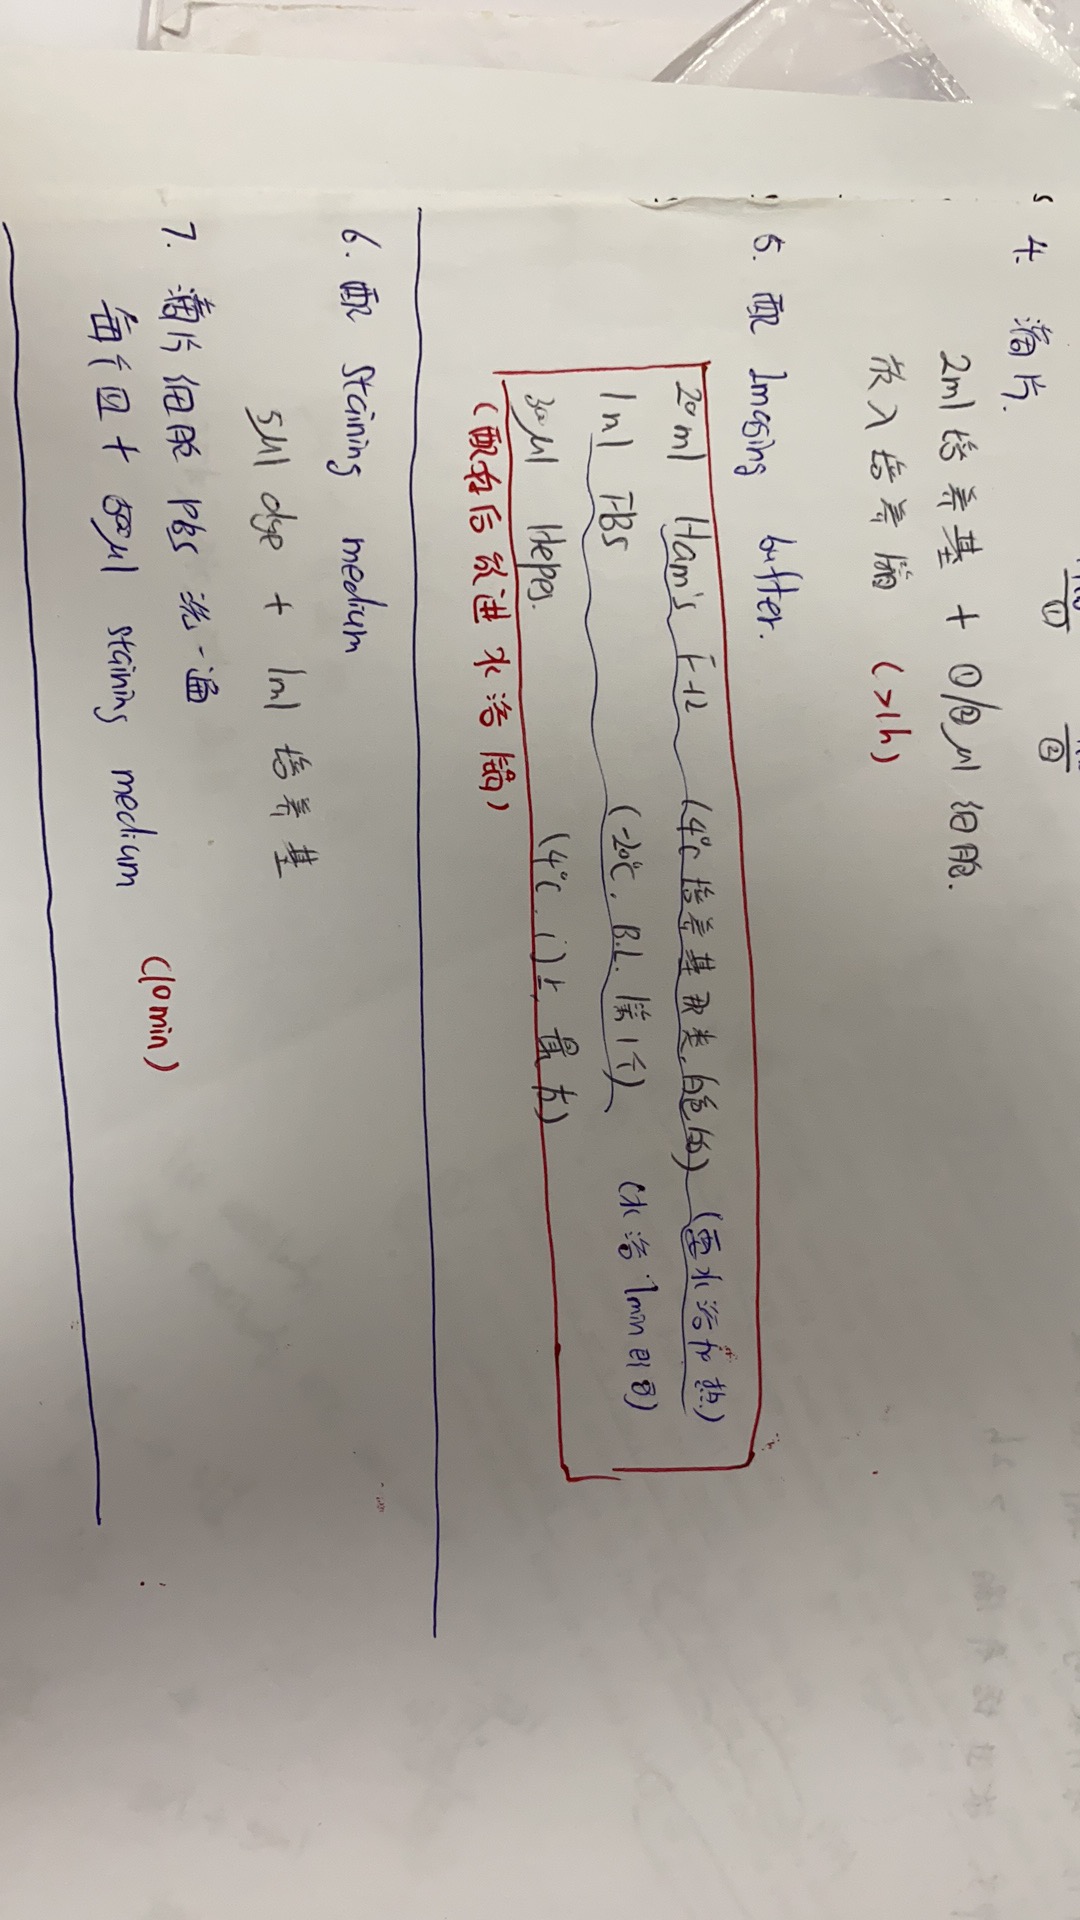 4. 滴片.
2ml 培养基 + ①/② μl 细胞.
放入培养箱 (>1h)
① ②
5. 配 Imaging buffer.
20 ml Ham's F-12 (4℃ 培养基 白色的) (要水浴加热)
1ml FBS (-20℃, B.L. 第1个) (水浴 1min 即可)
μl Hepes. (4℃, 最右)
(配好后放进水浴锅)
6. 配 staining medium
5μl dye + 1ml 培养基
7. 滴片细胞 PBS 洗一遍
每个皿 + 500μl staining medium (10min)